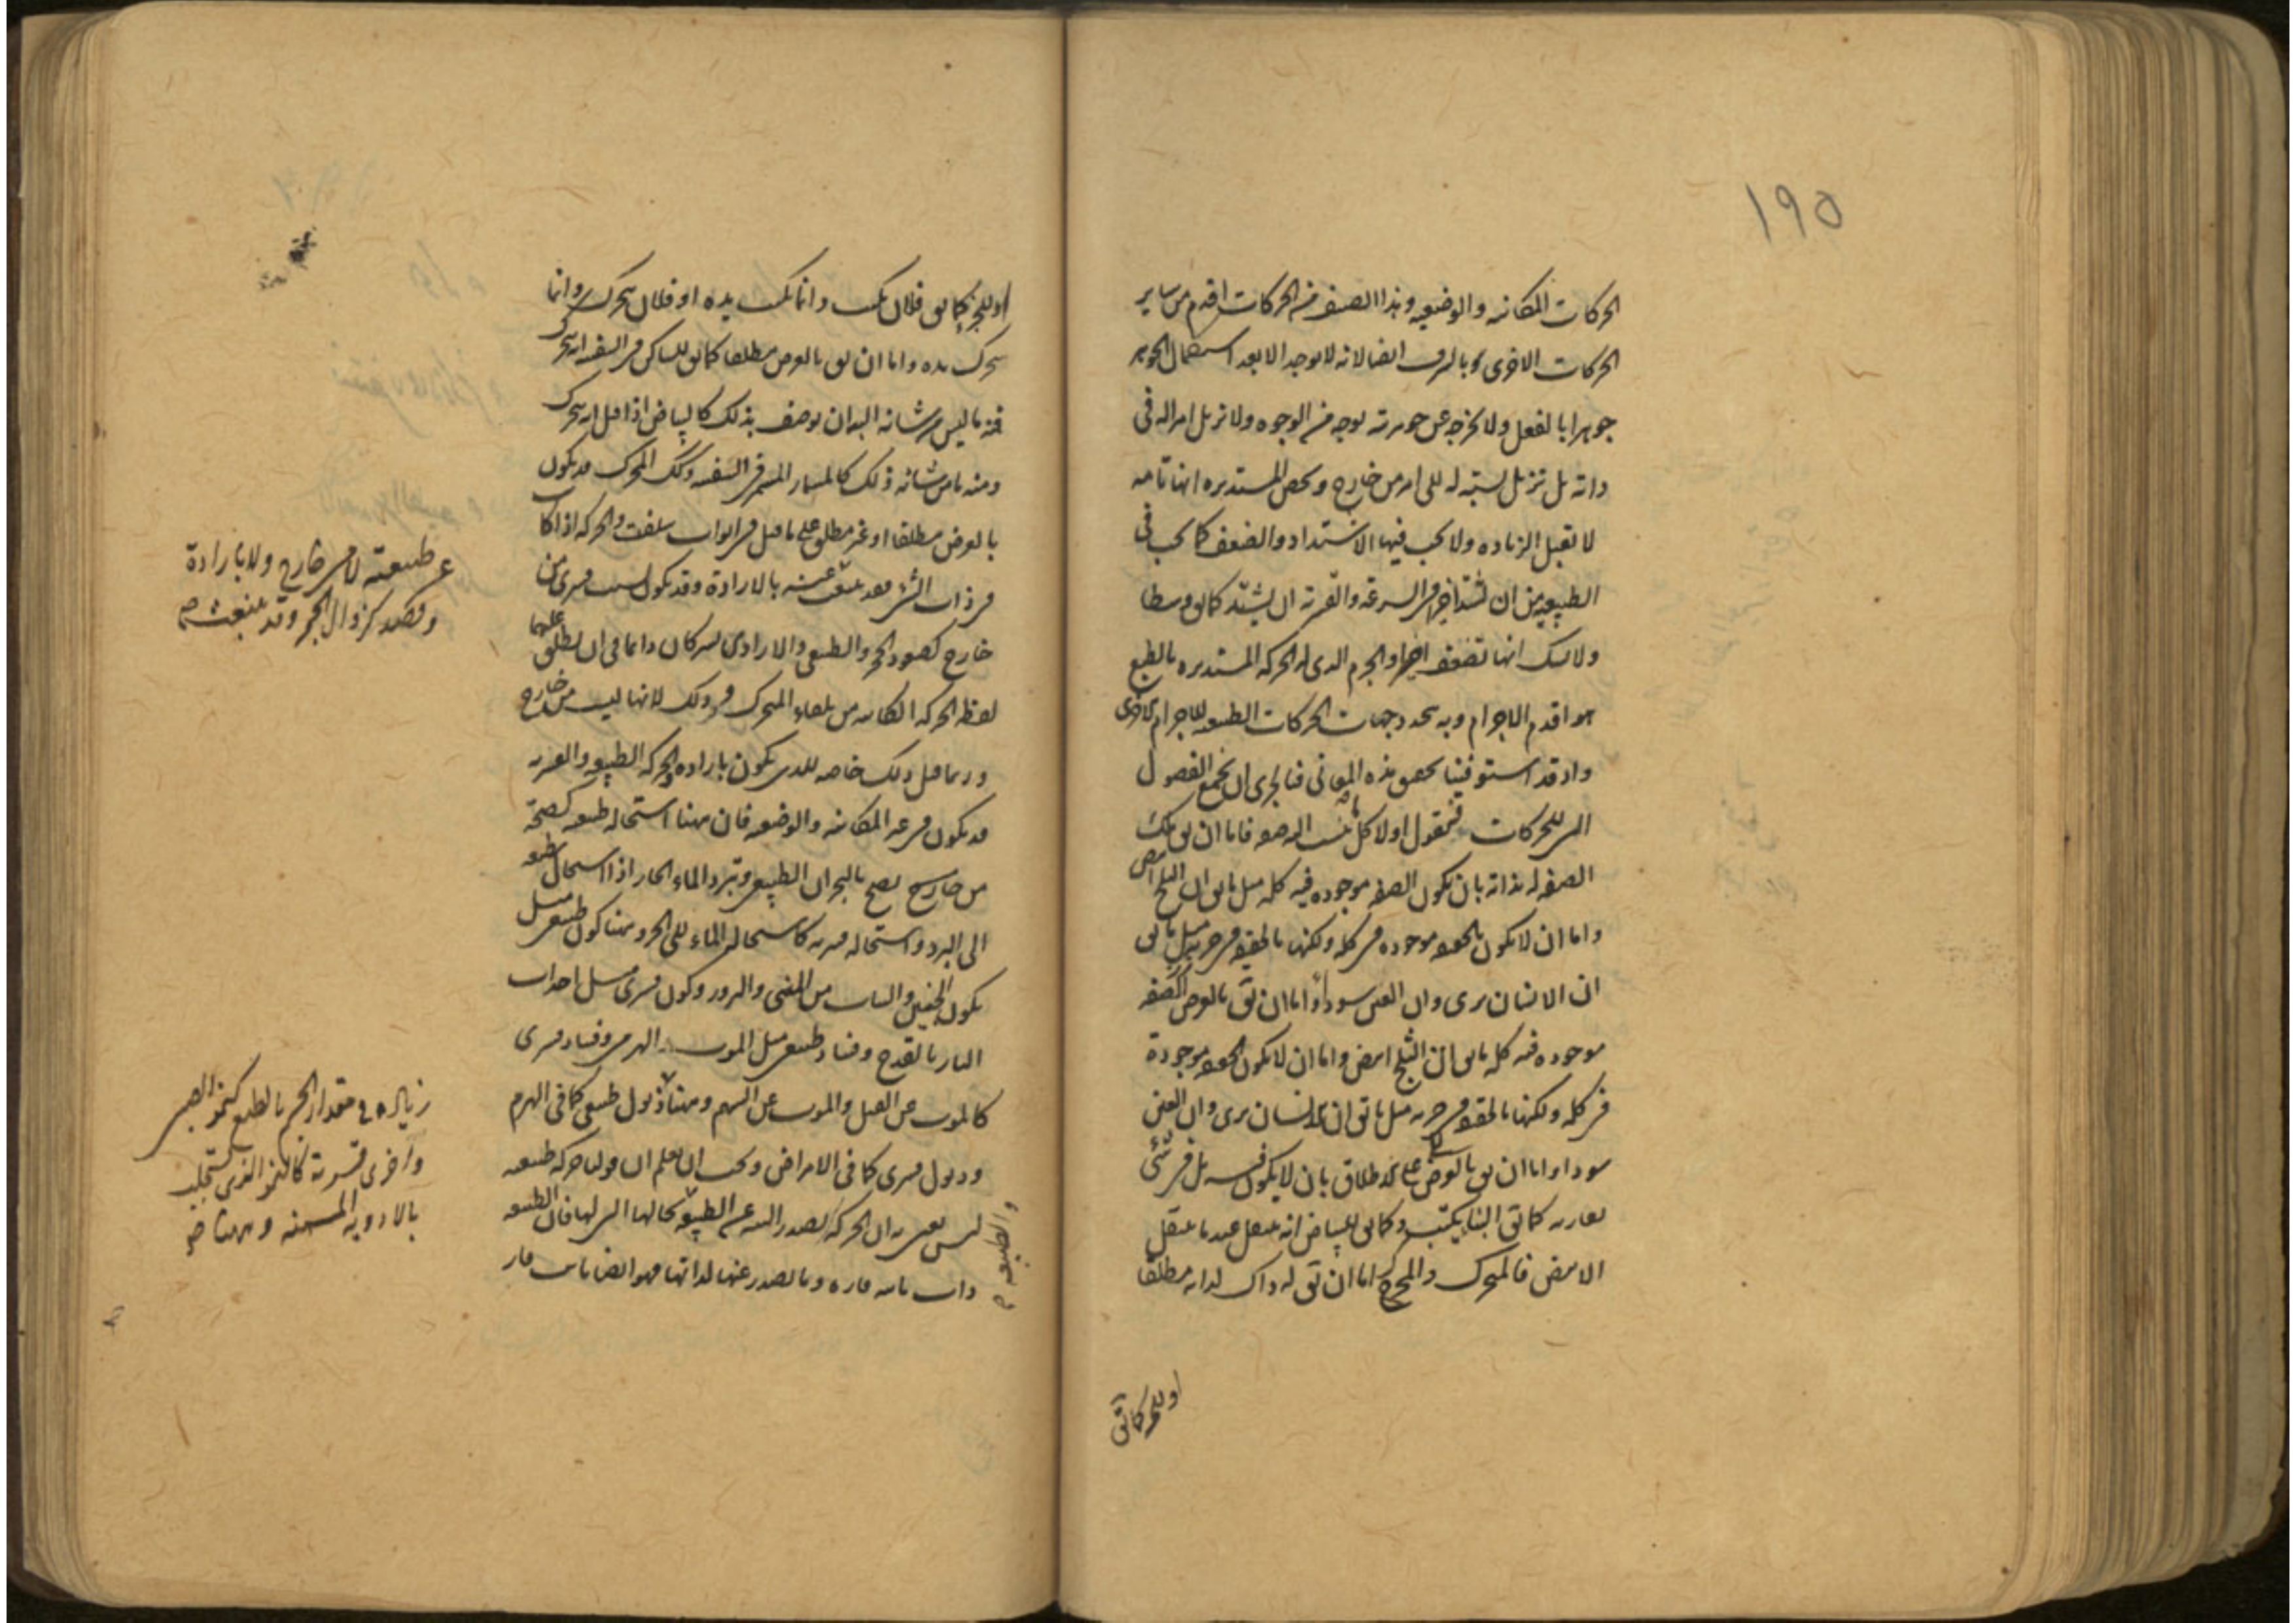 ١٩٥
الحركات المكانيه والوضعيه وهذا الصنف من الحركات اقدم من ساير
الحركات الاخرى وبالشرف ايضا لانه لا يوجد الا بعد استكمال الجوهر
جوهرا بالفعل ولا يخرجه عن جوهريته بوجه من الوجوه ولا تزيل امرا له فى
ذاته بل تزيل نسبته له الى امر من خارج ويخص المستديره انها تامه
لا تقبل الزياده ولا يجب فيها الاشتداد والضعف كما يجب فى
الطبيعيه من ان تشتد اخيرا فى السرعه والقسريه ان يشتد وسطا
ولا شك انها تضعف اخيرا والجرم الذى له الحركه المستديره بالطبع
هو اقدم الاجرام وبه يتحدد جهات الحركات الطبيعيه للاجرام الاخرى
واذ قد استوفينا تحقيق هذه المعانى فبالحرى ان نجمع الفصول
التى للحركات فنقول اولا كل ما ينسب اليه صفه فاما ان يق تلك
الصفه له بذاته بان تكون الصفه موجوده فيه كله مثل ما يق ان الثلج ابيض
واما ان لا تكون بالحقيقه موجوده فى كله ولكنها بالحقيقه فى جزء مثل ما يق
ان الانسان يرى وان العين سوداء واما ان يق بالعرض
موجوده فيه كله ما يق ان الثلج ابيض واما ان لا يكون بالحقيقه موجودة
فى كله ولكنها بالحقيقه فى جزء مثل ما يق ان الانسان يرى وان العين
سوداء واما ان يق بالعرض على الاطلاق بان لا يكون فيه بل فى شئ
يقارنه كما يق البناء يكتب وكما يق للبياض انه ينتقل عند ما ينتقل
الابيض فالمتحرك والمحرك اما ان يق له ذاك لذاته مطلقا
او للجزء كما يق
او للجزء كما يق فلان يكتب وانما يكتب يده او فلان يتحرك وانما
يتحرك يده واما ان يق بالعرض مطلقا كما يق للساكن فى السفينه انه يتحرك
فمنه ما ليس من شانه البته ان يوصف بذلك كالبياض اذا قيل انه يتحرك
ومنه ما من شانه ذلك كالمسمار المسمر فى السفينه وكذلك المحرك قد يكون
بالعرض مطلقا او غير مطلق على ما قيل فى ابواب سلفت والحركه اذا كانت
فى ذات الشئ فقد تنبعث عنه بالارادة وقد يكون لسبب قسرى من
خارج كصعود الحجر والطبيعى والارادى يشتركان دائما فى ان يطلق عليهما
لفظ الحركه الكائنه من تلقاء المتحرك وذلك لانها ليست من خارج
وربما قيل ذلك خاصه للذى يكون بارادة والحركه الطبيعيه والقسريه
قد تكون فى غير المكانيه والوضعيه فان ههنا استحاله طبيعيه كصحة
من يصح بالبحران الطبيعى وتبرد الماء الحار اذا استحال بطبعه
الى البرد واستحاله قسريه كاستحاله الماء الى الحر وههنا كون طبيعى مثل
تكون الجنين والنبات من المنى والبزور وكون قسرى مثل احداث
النار بالقدح وفساد طبيعى مثل الموت الهرمى وفساد قسرى
كالموت عن القتل والموت عن السم وههنا ذبول طبيعى كما فى الهرم
وذبول قسرى كما فى الامراض ويجب ان يعلم ان قولنا حركه طبيعيه
ليس يعنى به ان الحركه تصدر البته عن الطبيعه بحالها التى لها فان الطبيعه
ذات ثابته قاره وما يصدر عنها لذاتها فهو ايضا ثابت قار
عن طبيعته لا من خارج ولا بارادة
وقصد كنزول الحجر وقد ينبعث صح
زياده فى مقدار الجسم بالطبع كنمو الصبى
واخرى قسرية كالنمو الذى يستجلب
بالادويه المسمنه وههنا صح
والطبيعيه صح